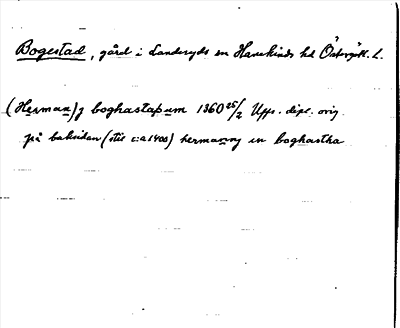 Bogestad, gård i Landeryds sn Hanekinds hd Östergötl. L.
(Herman) j boghastaþum 1360 25/2 Upps. dipl. orig.
på baksidan (stil c:a 1400) hermanny in boghastha